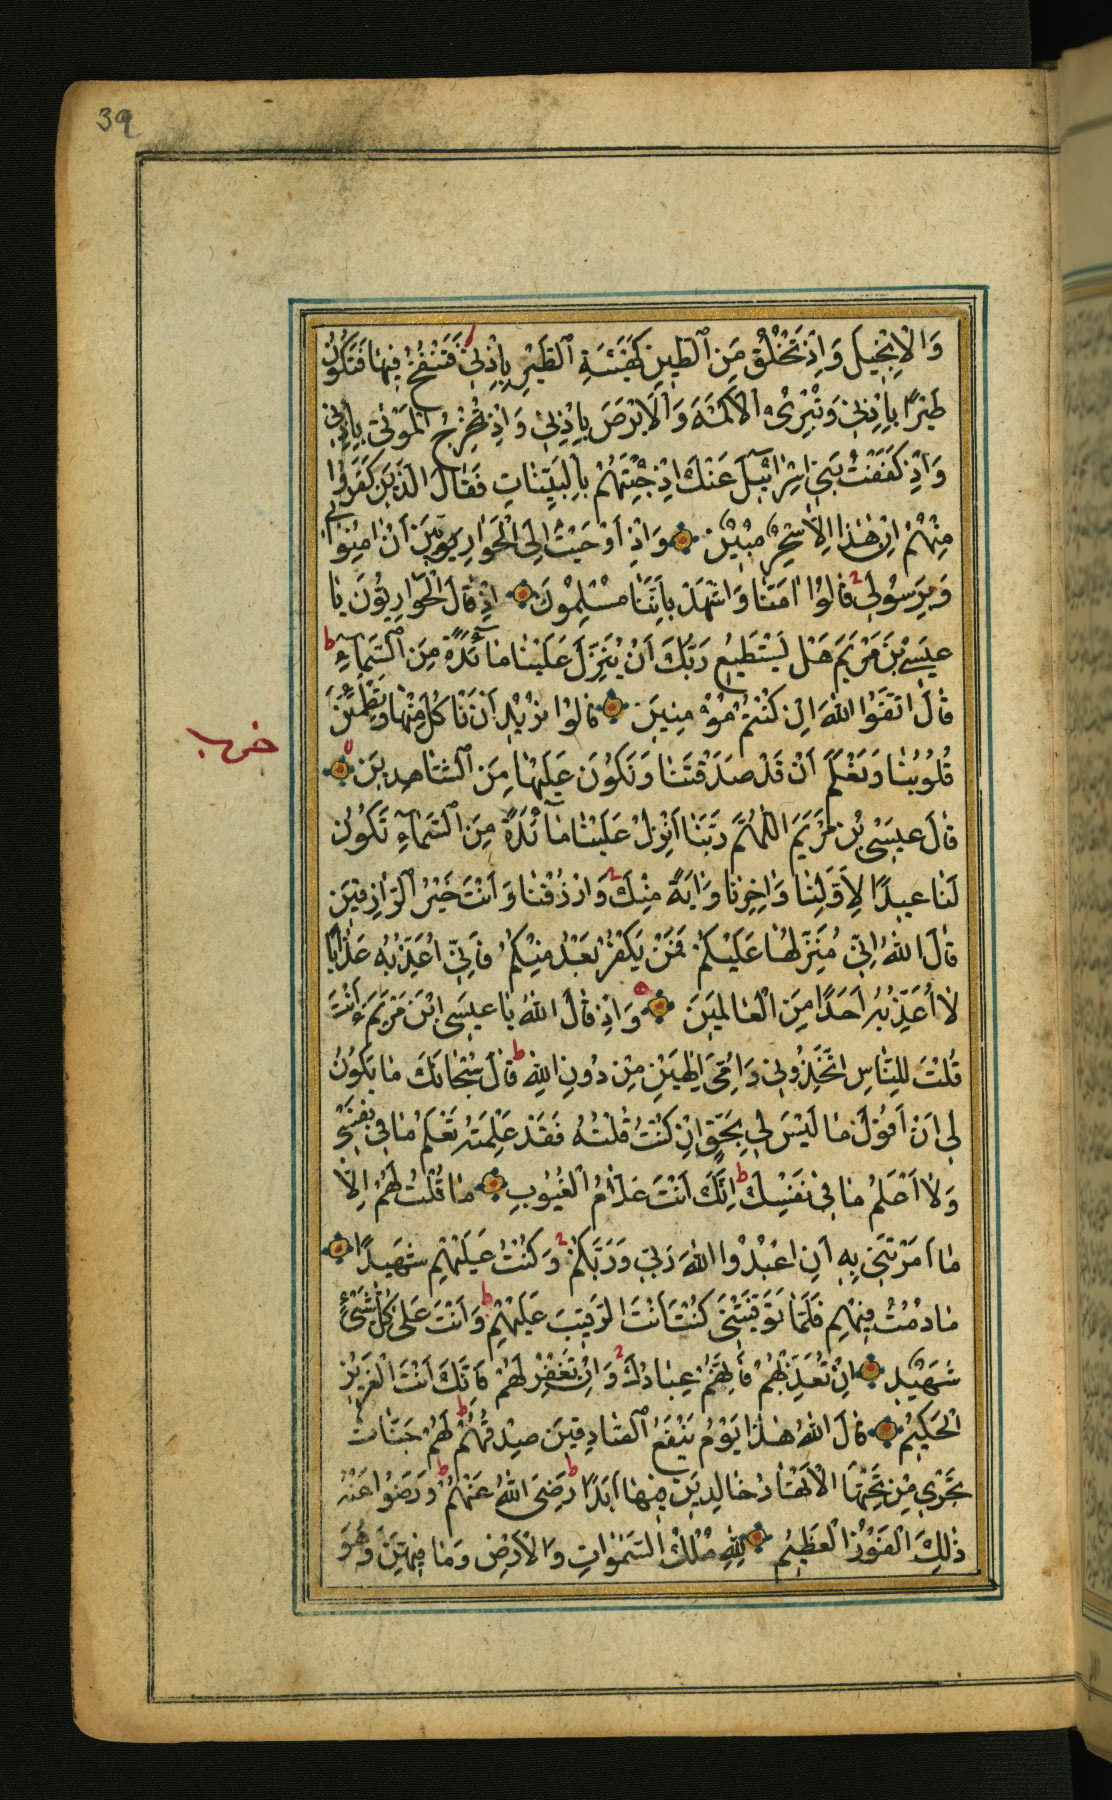 39
وَالْاِنْجِيلَ وَاِذْ تَخْلُقُ مِنَ الطِّينِ كَهَيْئَةِ الطَّيْرِ بِاِذْنِي فَتَنْفُخُ فِيهَا فَتَكُونُ
طَيْرًا بِاِذْنِي وَتُبْرِئُ الْاَكْمَهَ وَالْاَبْرَصَ بِاِذْنِي وَاِذْ تُخْرِجُ الْمَوْتٰى بِاِذْنِي
وَاِذْ كَفَفْتُ بَنِي اِسْرَائِيلَ عَنْكَ اِذْ جِئْتَهُمْ بِالْبَيِّنَاتِ فَقَالَ الَّذِينَ كَفَرُوا
مِنْهُمْ اِنْ هٰذَا اِلَّا سِحْرٌ مُبِينٌ وَاِذْ اَوْحَيْتُ اِلَى الْحَوَارِيِّينَ اَنْ اٰمِنُوا بِي
وَبِرَسُولِي قَالُوا اٰمَنَّا وَاشْهَدْ بِاَنَّنَا مُسْلِمُونَ اِذْ قَالَ الْحَوَارِيُّونَ يَا
عِيسَى بْنَ مَرْيَمَ هَلْ يَسْتَطِيعُ رَبُّكَ اَنْ يُنَزِّلَ عَلَيْنَا مَائِدَةً مِنَ السَّمَاءِ ط
قَالَ اتَّقُوا اللّٰهَ اِنْ كُنْتُمْ مُؤْمِنِينَ قَالُوا نُرِيدُ اَنْ نَاْكُلَ مِنْهَا وَتَطْمَئِنَّ
قُلُوبُنَا وَنَعْلَمَ اَنْ قَدْ صَدَقْتَنَا وَنَكُونَ عَلَيْهَا مِنَ الشَّاهِدِينَ
حزب
قَالَ عِيسَى بْنُ مَرْيَمَ اللّٰهُمَّ رَبَّنَا اَنْزِلْ عَلَيْنَا مَائِدَةً مِنَ السَّمَاءِ تَكُونُ
لَنَا عِيدًا لِاَوَّلِنَا وَاٰخِرِنَا وَاٰيَةً مِنْكَ وَارْزُقْنَا وَاَنْتَ خَيْرُ الرَّازِقِينَ
قَالَ اللّٰهُ اِنِّي مُنَزِّلُهَا عَلَيْكُمْ فَمَنْ يَكْفُرْ بَعْدُ مِنْكُمْ فَاِنِّي اُعَذِّبُهُ عَذَابًا
لَا اُعَذِّبُهُ اَحَدًا مِنَ الْعَالَمِينَ وَاِذْ قَالَ اللّٰهُ يَا عِيسَى ابْنَ مَرْيَمَ ءَاَنْتَ
قُلْتَ لِلنَّاسِ اتَّخِذُونِي وَاُمِّيَ اِلٰهَيْنِ مِنْ دُونِ اللّٰهِ ط قَالَ سُبْحَانَكَ مَا يَكُونُ
لِي اَنْ اَقُولَ مَا لَيْسَ لِي بِحَقٍّ اِنْ كُنْتُ قُلْتُهُ فَقَدْ عَلِمْتَهُ تَعْلَمُ مَا فِي نَفْسِي
وَلَا اَعْلَمُ مَا فِي نَفْسِكَ ط اِنَّكَ اَنْتَ عَلَّامُ الْغُيُوبِ مَا قُلْتُ لَهُمْ اِلَّا
مَا اَمَرْتَنِي بِهِ اَنِ اعْبُدُوا اللّٰهَ رَبِّي وَرَبَّكُمْ وَكُنْتُ عَلَيْهِمْ شَهِيدًا
مَا دُمْتُ فِيهِمْ فَلَمَّا تَوَفَّيْتَنِي كُنْتَ اَنْتَ الرَّقِيبَ عَلَيْهِمْ ط وَاَنْتَ عَلٰى كُلِّ شَيْءٍ
شَهِيدٌ اِنْ تُعَذِّبْهُمْ فَاِنَّهُمْ عِبَادُكَ وَاِنْ تَغْفِرْ لَهُمْ فَاِنَّكَ اَنْتَ الْعَزِيزُ
الْحَكِيمُ قَالَ اللّٰهُ هٰذَا يَوْمُ يَنْفَعُ الصَّادِقِينَ صِدْقُهُمْ ط لَهُمْ جَنَّاتٌ
تَجْرِي مِنْ تَحْتِهَا الْاَنْهَارُ خَالِدِينَ فِيهَا اَبَدًا ط رَضِيَ اللّٰهُ عَنْهُمْ ط وَرَضُوا عَنْهُ
ذٰلِكَ الْفَوْزُ الْعَظِيمُ لِلّٰهِ مُلْكُ السَّمٰوَاتِ وَالْاَرْضِ وَمَا فِيهِنَّ وَهُوَ